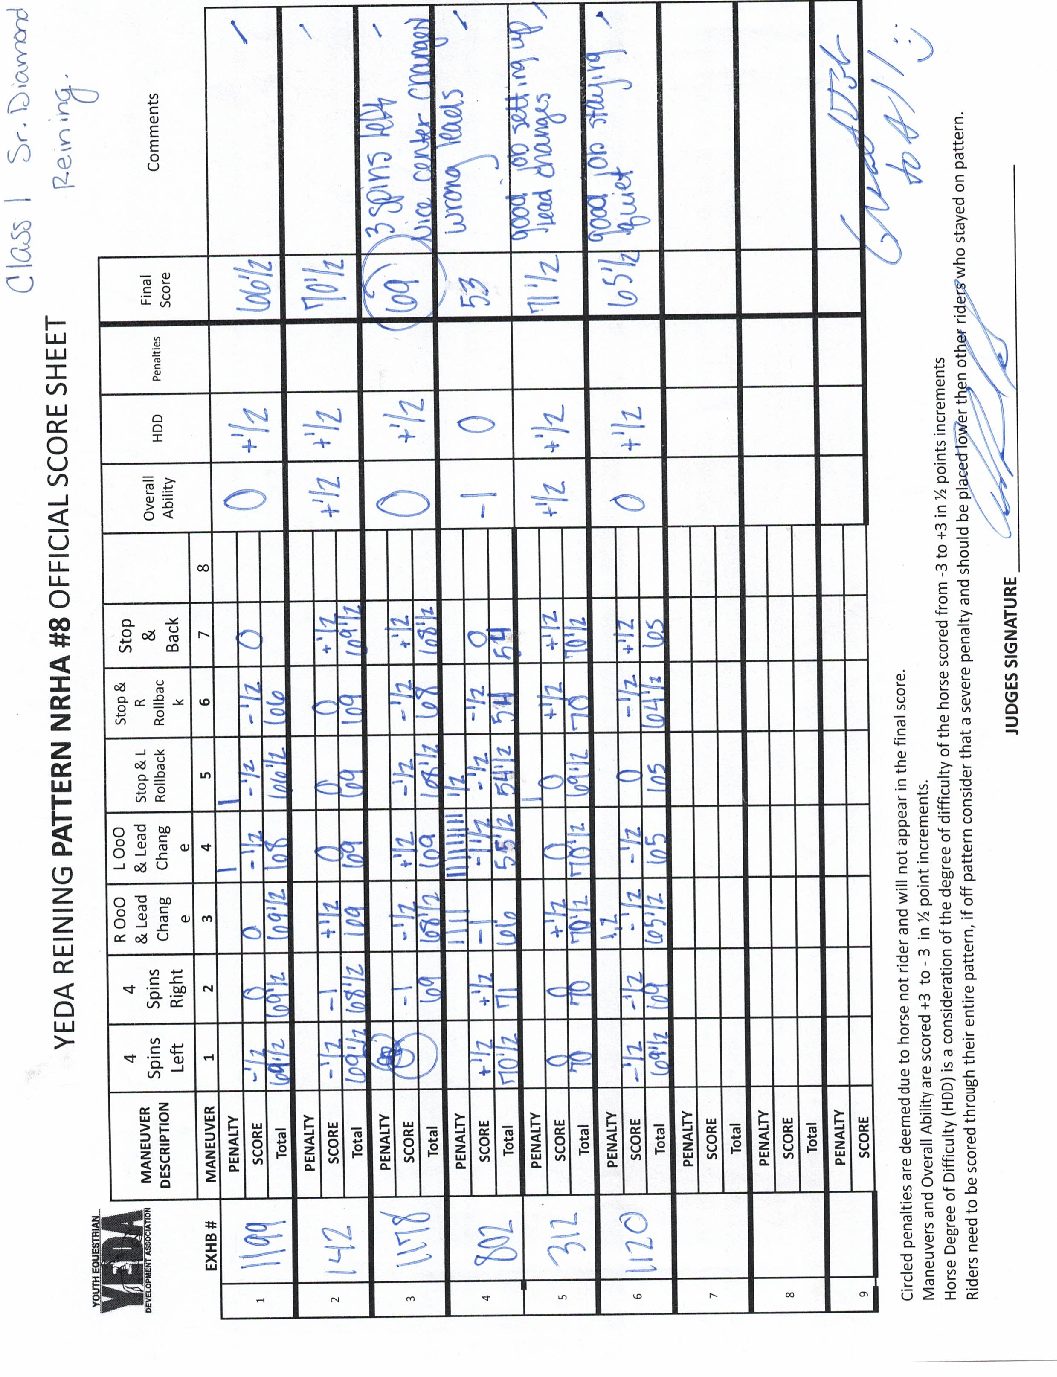 Class 1 Sr. Diamond
Reining.
YEDA REINING PATTERN NRHA #8 OFFICIAL SCORE SHEET
YOUTH EQUESTRIAN
YEDA
DEVELOPMENT ASSOCIATION
MANEUVER DESCRIPTION 4 Spins Left 4 Spins Right R OoO & Lead Chang e L OoO & Lead Chang e Stop & L Rollback Stop & R Rollbac k Stop & Back Overall Ability HDD Penalties Final Score Comments
EXHB # MANEUVER 1 2 3 4 5 6 7 8
1 1199 PENALTY 1 1
SCORE -1/2 0 0 -1/2 -1/2 -1/2 0 0 +1/2 66 1/2
Total 69 1/2 69 1/2 69 1/2 68 66 1/2 66
2 142 PENALTY
SCORE -1/2 -1 +1/2 0 0 0 +1/2 +1/2 +1/2 70 1/2
Total 69 1/2 68 1/2 69 69 69 69 69 1/2
3 1178 PENALTY 3 spins left
SCORE -1 -1/2 +1/2 -1/2 -1/2 +1/2 0 +1/2 69 nice center changes
Total 69 68 1/2 69 68 1/2 68 68 1/2
4 802 PENALTY 1/2
SCORE +1/2 +1/2 -1 -1 1/2 -1/2 -1/2 0 -1 0 53 wrong leads
Total 70 1/2 71 66 55 1/2 54 1/2 54 54
5 312 PENALTY good job setting up
SCORE 0 0 +1/2 0 0 +1/2 +1/2 +1/2 +1/2 71 1/2 lead changes
Total 70 70 70 1/2 70 1/2 69 1/2 70 70 1/2
6 1120 PENALTY good job staying
SCORE -1/2 -1/2 -1/2 -1/2 0 -1/2 +1/2 0 +1/2 65 1/2 quiet
Total 69 1/2 69 65 1/2 65 65 64 1/2 65
7 PENALTY
SCORE
Total
8 PENALTY
SCORE
Total
9 PENALTY
SCORE
to All! :)
Circled penalties are deemed due to horse not rider and will not appear in the final score.
Maneuvers and Overall Ability are scored +3 to - 3 in ½ point increments.
Horse Degree of Difficulty (HDD) is a consideration of the degree of difficulty of the horse scored from -3 to +3 in ½ points increments
Riders need to be scored through their entire pattern, if off pattern consider that a severe penalty and should be placed lower then other riders who stayed on pattern.
JUDGES SIGNATURE